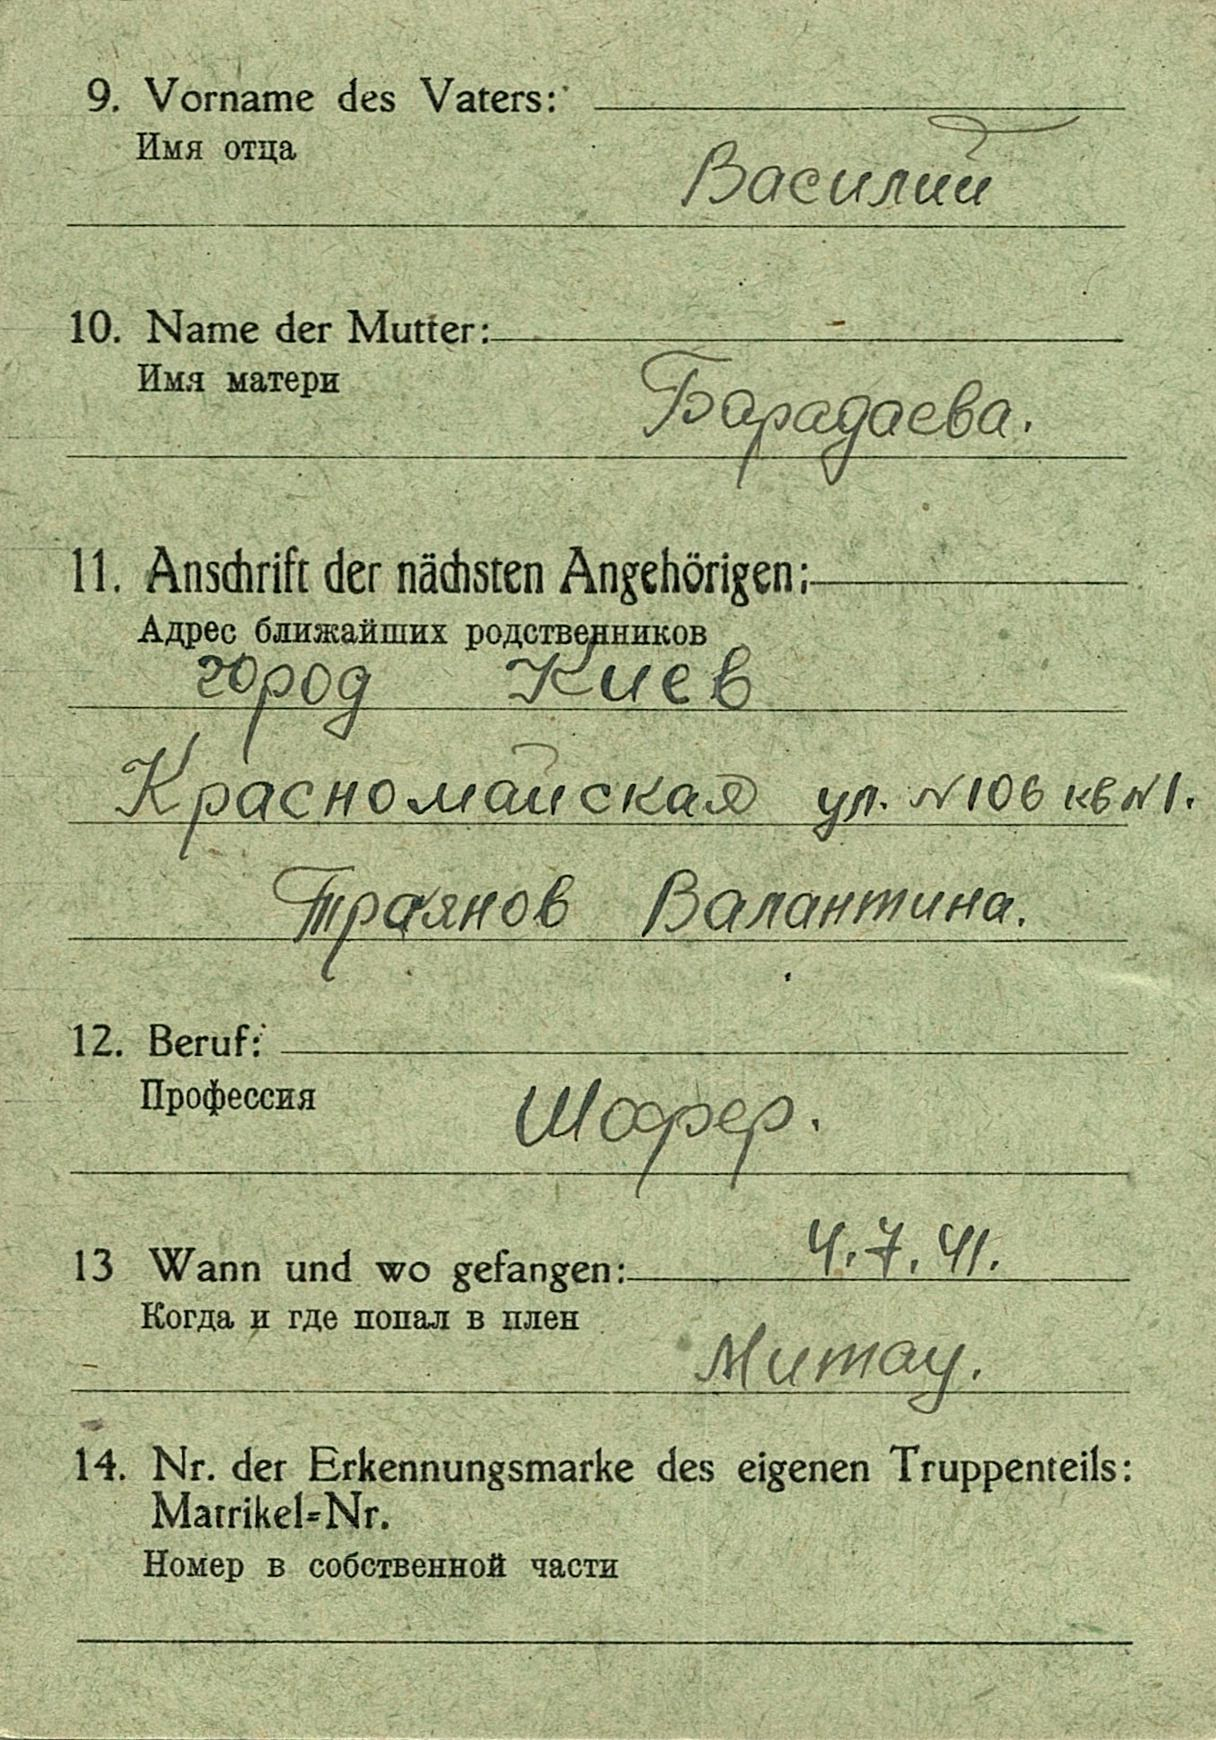 9. Vorname des Vaters:
Имя отца
Василий
10. Name der Mutter:
Имя матери
Барадаева.
11. Anschrift der nächsten Angehörigen:
Адрес ближайших родственников
город Киев
Красномайская ул. №106 кв №1.
Траянов Валантина.
12. Beruf:
Профессия
Шофер.
13 Wann und wo gefangen: 4.7.41.
Когда и где попал в плен
Митау.
14. Nr. der Erkennungsmarke des eigenen Truppenteils:
Matrikel=Nr.
Номер в собственной части